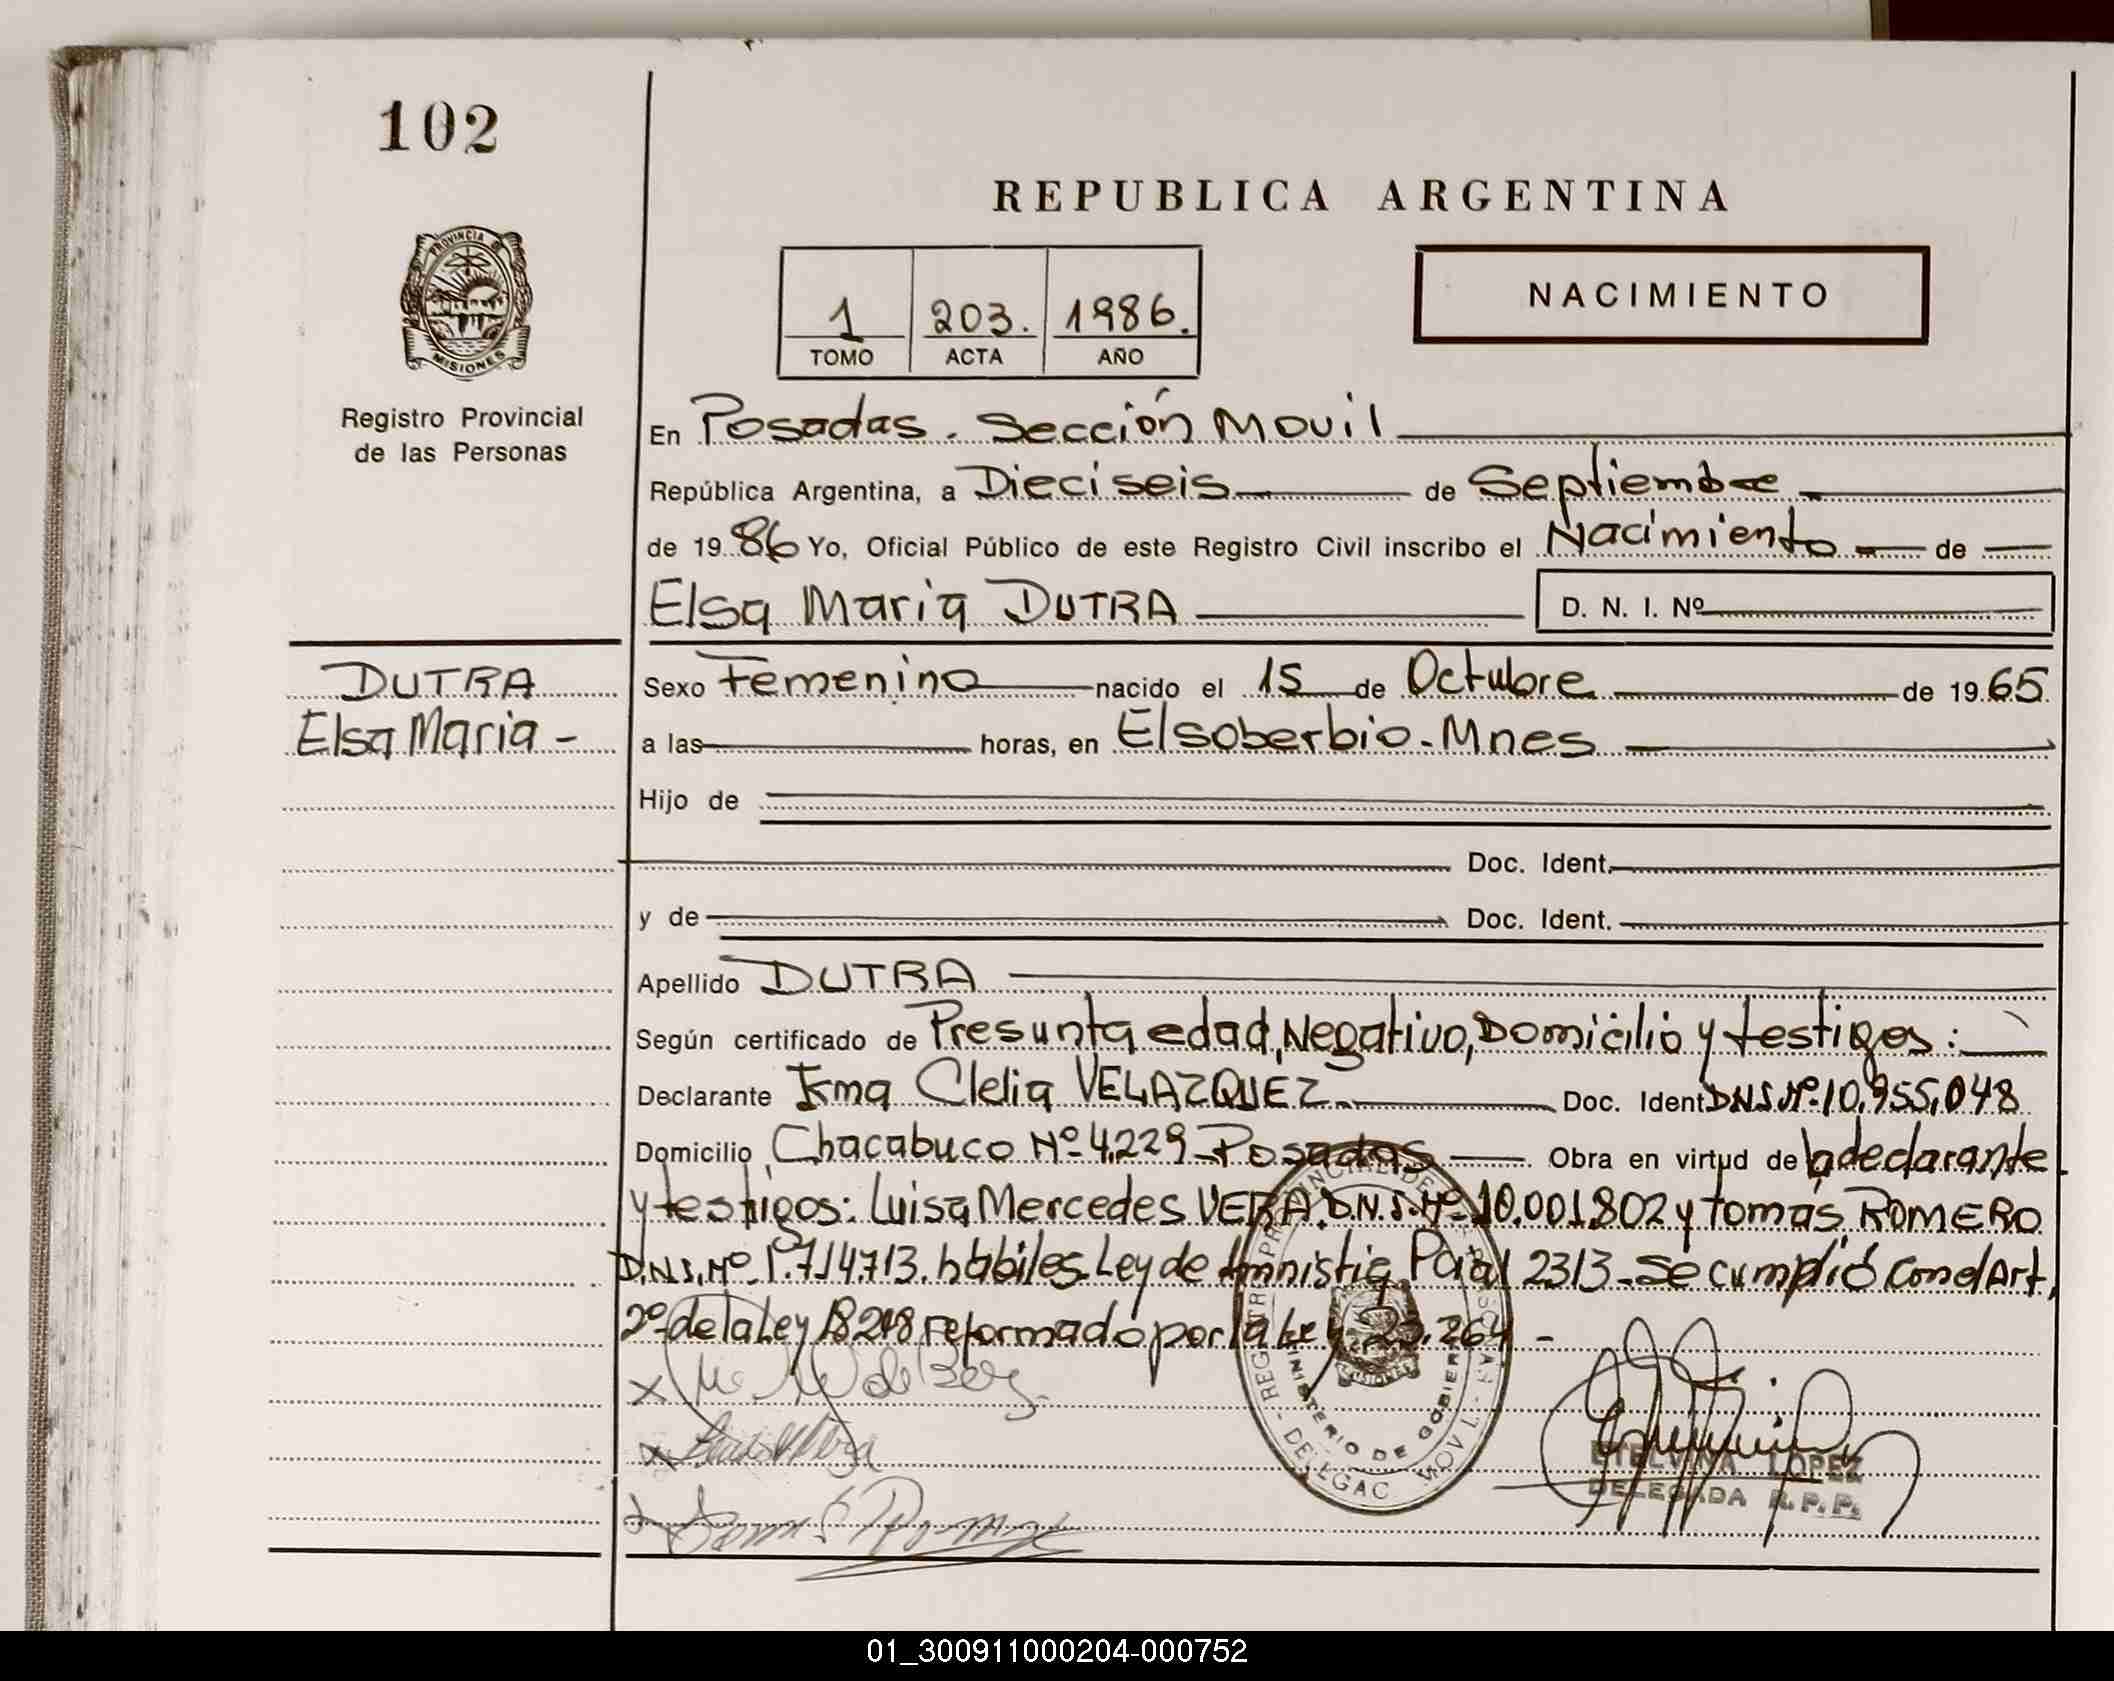 102
REPUBLICA ARGENTINA
PROVINCIA DE
MISIONES
Registro Provincial
de las Personas
1 203. 1986.
TOMO ACTA AÑO
NACIMIENTO
En Posadas. Sección Movil
República Argentina, a Dieciseis de Septiembre
de 1986 Yo, Oficial Público de este Registro Civil inscribo el Nacimiento de
Elsa Maria DUTRA D. N. I. Nº
DUTRA
Elsa Maria -
Sexo Femenino nacido el 15 de Octubre de 1965
a las horas, en Elsoberbio - Mnes
Hijo de
Doc. Ident.
y de Doc. Ident.
Apellido DUTRA
Según certificado de Presunta edad, Negativo, Domicilio y testigos:
Declarante Irma Clelia VELAZQUEZ Doc. Ident D.N.I. Nº 10.955.048
Domicilio Chacabuco Nº 4229 - Posadas Obra en virtud de la declarante
y testigos: Luisa Mercedes VERA D.N.I. Nº 10.001.802 y tomás ROMERO
D.N.I. Nº 1.714.713. habiles Ley de Amnistia Pcial 2313 - Se cumplió con el Art.
2º de la Ley 18248 reformado por la Ley 23.264 -
REGISTRO PROVINCIAL DE LAS PERSONAS
MINISTERIO DE GOBIERNO
DELEGAC MOVIL
ETELVINA LOPEZ
DELEGADA R. P. P.
01_300911000204-000752